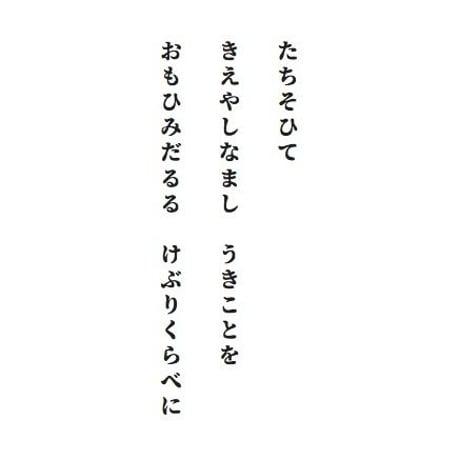 たちそひて
きえやしなまし　うきことを
おもひみだるる　けぶりくらべに